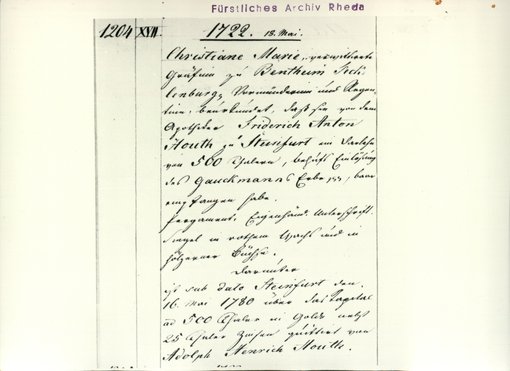 Fürstliches Archiv Rheda
1204 XVII. 1722. 18. Mai.
Christiane Marie, verwittwete
Gräfin zu Bentheim Teck-
lenburg, Vormünderin und Regen-
tin, beurkundet, daß sie von dem
Apotheker Friderich Anton
Houth zu Steinfurt ein Darlehn
von 500 Thalern, behufs Einlösung
des Gauckmanns Erbe, baar
empfangen habe.
Pergament. Eigenhänd. Unterschrift.
Siegel in rothem Wachs und in
hölzerner Büchse.
Darunter
ist sub dato Steinfurt den
16. Mai 1780 über das Capital
ad 500 Thaler in Golde nebst
25 Thaler Zinsen quittirt von
Adolph Henrich Houth.